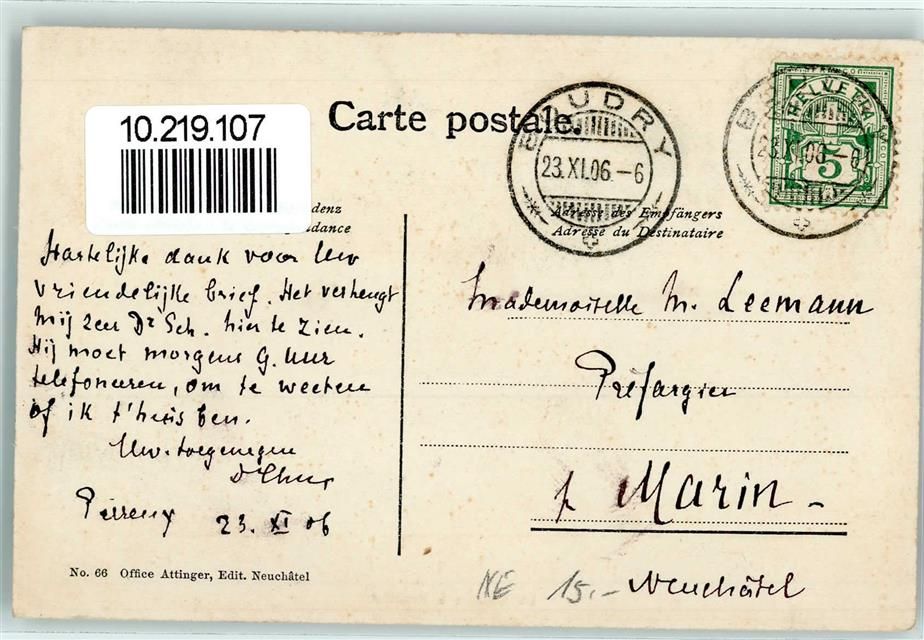 10.219.107
Carte postale.
BOUDRY
23.XI.06.-6
BOUDRY
23.XI.06.-6
HELVETIA
5
denz
dance
Adresse des Empfängers
Adresse du Destinataire
Hartelijke dank voor Uw
vriendelijke brief. Het verheugt
mij zeer Dr Sch. hier te zien.
Hij moet morgens 9. uur
telefoneren, om te weeten
of ik t'huis ben.
Uw. toegenegen
Perreux 23. XI 06
Mademoiselle M. Leemann
Préfargier
p Marin -
Neuchâtel
No. 66 Office Attinger, Edit. Neuchâtel
NE 15.-